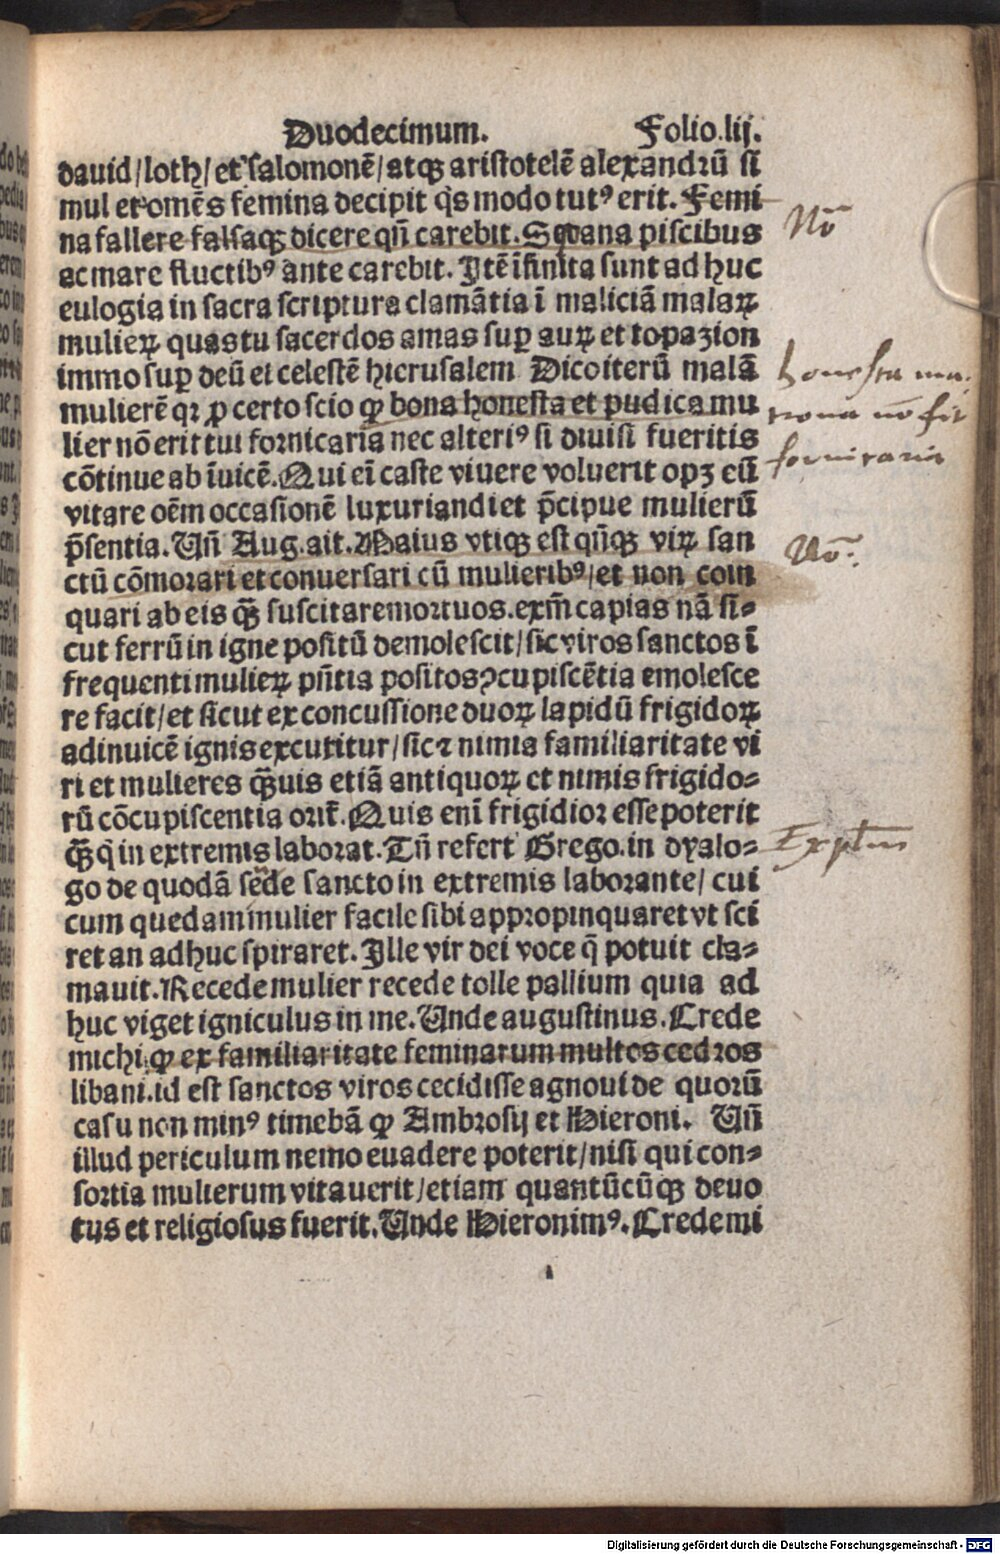 Duodecimum. Folio.lij.
dauid/loth/et salomonē/atqꝫ aristotelē alexandrū si
mul et omēs femina decipit q̇s modo tutꝰ erit. Femi
na fallere falsaqꝫ dicere qn̄ carebit. Seqana piscibus
ac mare fluctibꝰ ante carebit. Itē īfinita sunt ad huc
eulogia in sacra scriptura clamātia ī maliciā malaꝝ
mulieꝝ quas tu sacerdos amas suꝑ auꝝ et topazion
immo suꝑ deū et celestē hierusalem Dico iterū malā
mulierē qꝛ ꝓ certo scio ꝙ bona honesta et pudica mu
lier nō erit tui fornicaria nec alteriꝰ si diuisi fueritis
cōtinue ab īuicē. Qui eī caste viuere voluerit opꝫ eū
vitare oēm occasionē luxuriandi et p̄cipue mulierū
p̄sentia. Un̄ Aug. ait. Maius vtiqꝫ est qn̄qꝫ viꝝ san
ctū cōmorari et conuersari cū mulieribꝰ/et non coin
quari ab eis qꝫ̄ suscitare mortuos. exm̄ capias nā si⸗
cut ferrū in igne positū demolescit/sic viros sanctos ī
frequenti mulieꝝ pn̄tia positos ꝯcupiscētia emolesce
re facit/et sicut ex concussione duoꝝ lapidū frigidoꝝ
adinuicē ignis excutitur/sic ⁊ nimia familiaritate vi
ri et mulieres qꝫ̄uis etiā antiquoꝝ et nimis frigido⸗
rū cōcupiscentia orit᷑. Quis enī frigidior esse poterit
qꝫ̄ q̇ in extremis laborat. Tn̄ refert Grego. in dyalo⸗
go de quodā sene sancto in extremis laborante/ cui
cum quedam mulier facile sibi appropinquaret vt sci
ret an adhuc spiraret. Ille vir dei voce q̄ potuit cla⸗
mauit. Recede mulier recede tolle pallium quia ad
huc viget igniculus in me. Unde augustinus. Crede
michi ꝙ ex familiaritate feminarum multos cedros
libani. id est sanctos viros cecidisse agnoui de quorū
casu non minꝰ timebā ꝙ Ambrosij et Hieroni. Un̄
illud periculum nemo euadere poterit/nisi qui con⸗
sortia mulierum vitauerit/etiam quantūcūqꝫ deuo
tus et religiosus fuerit. Unde Hieronimꝰ. Crede mi
Nō
honesta ma
trona nō fit
fornicaria
Nō.
Digitalisierung gefördert durch die Deutsche Forschungsgemeinschaft - DFG